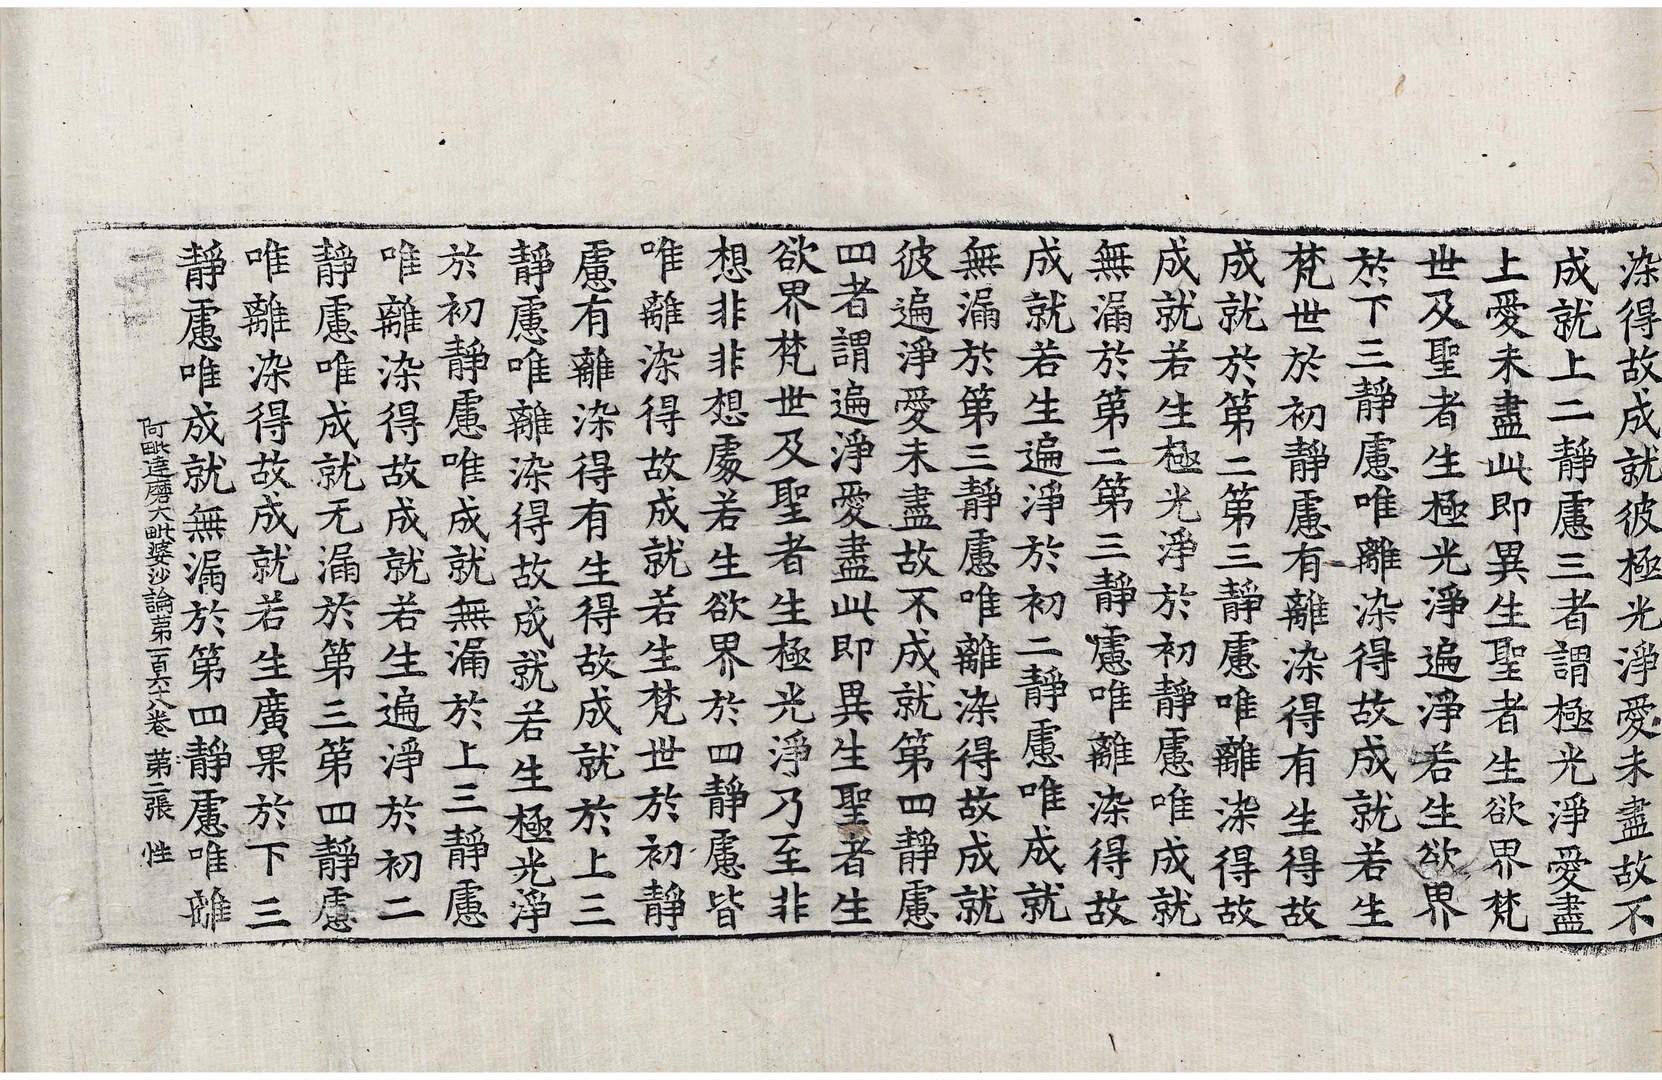 染得故成就彼極光淨愛未盡故不
成就上二靜慮三者謂極光淨愛盡
上愛未盡此即異生聖者生欲界梵
世及聖者生極光淨遍淨若生欲界
於下三靜慮唯離染得故成就若生
梵世於初靜慮有離染得有生得故
成就於第二第三靜慮唯離染得故
成就若生極光淨於初靜慮唯成就
無漏於第二第三靜慮唯離染得故
成就若生遍淨於初二靜慮唯成就
無漏於第三靜慮唯離染得故成就
彼遍淨愛未盡故不成就第四靜慮
四者謂遍淨愛盡此即異生聖者生
欲界梵世及聖者生極光淨乃至非
想非非想處若生欲界於四靜慮皆
唯離染得故成就若生梵世於初靜
慮有離染得有生得故成就於上三
靜慮唯離染得故成就若生極光淨
於初靜慮唯成就無漏於上三靜慮
唯離染得故成就若生遍淨於初二
靜慮唯成就无漏於第三第四靜慮
唯離染得故成就若生廣果於下三
靜慮唯成就無漏於第四靜慮唯離
阿毗達磨大毗婆沙論第一百六十八卷 第二張 性